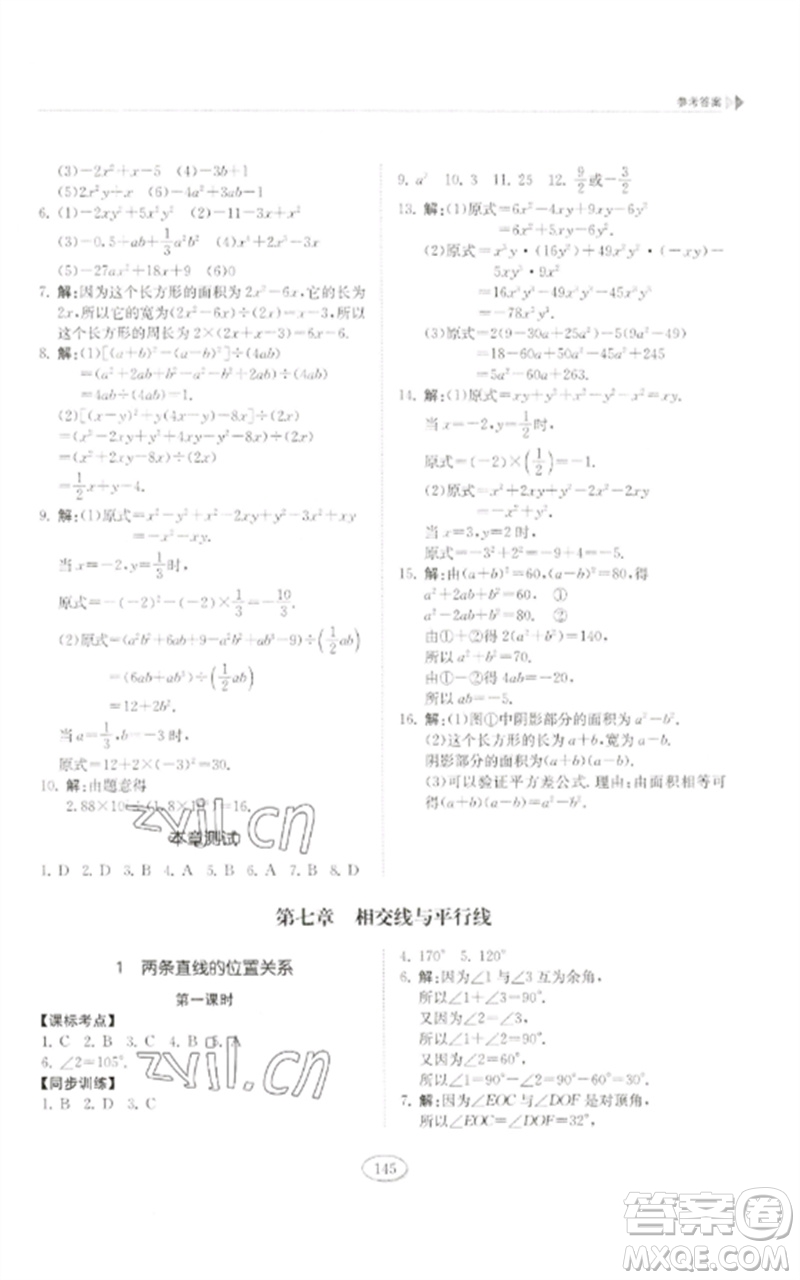 参考答案
(3)-2x²+x-5 (4)-3b+1
(5)2x²y÷x (6)-4a²+3ab-1
6. (1)-2x²+5x (2)-11-3x+x²
(3)-0.5+ab+1/3a²b² (4)x³+x
(5)-27ax²+9 (6)0
7. 解:因为这个长方形的面积为2x²-6x,它的长为
2x,所以它的宽为(2x²-6x)÷2x=x-3.所以
这个长方形的周长为2×(2x+x-3)=6x-6.
8. 解:(1)[(a+b)²-(a-b)²]÷(4ab)
=(a²+2ab+b²-a²+2ab-b²)÷(4ab)
=4ab÷(4ab)=1.
(2)[(x-y)²+y(4x-y)-8x]÷(2x)
=(x²-2xy+y²+4xy-y²-8x)÷(2x)
=(x²+2xy-8x)÷(2x)
=1/2x+y-4.
9. 解:(1)原式=x²-y²+x²-2xy+y²-3x²+xy
=-x²-xy.
当x=-2,y=1/3时,
原式=-(-2)²-(-2)×1/3=-10/3.
(2)原式=(a²b²+6ab+9-a²b²+ab³-9)÷(1/2ab)
=(6ab+ab³)÷(1/2ab)
=12+2b².
当a=1/3,b=-3时,
原式=12+2×(-3)²=12+18=30.
10. 解:由题意得
本章测试
1. D 2. D 3. B 4. A 5. B 6. A 7. B 8. D
9. a² 10. 3 11. 25 12. 9/2或-3/2
13. 解:(1)原式=6x²-4xy+9xy-6y²
=6x²+5xy-6y².
=16x³y-45x³y-49x³y
=-78x³y.
(3)原式=2(9-30a+25a²)-5(9a²-49)
=18-60a+50a²-45a²+245
=5a²-60a+263.
14. 解:(1)原式=xy+y²+x²-y²-x²=xy.
当x=-2,y=1/2时,
原式=(-2)×(1/2)=-1.
(2)原式=x²+2xy-2x²-2xy+y²
=-x²+y².
当x=3,y=2时,
原式=-3²+2²=-9+4=-5.
15. 解:由(a+b)²=60,(a-b)²=80,得
a²+2ab+b²=60, ①
a²-2ab+b²=80. ②
由①+②得2(a²+b²)=140,
所以a²+b²=70.
由①-②得4ab=-20,
所以ab=-5.
16. 解:(1)图①中阴影部分的面积为a²-b².
(2)这个长方形的长为a+b,宽为a-b.
阴影部分的面积为(a+b)(a-b).
(3)可以验证平方差公式.理由:由面积相等可
得(a+b)(a-b)=a²-b².
第七章 相交线与平行线
1 两条直线的位置关系
第一课时
【课标考点】
1. C 2. B 3. C 4. B 5. A
6. ∠2=105°.
【同步训练】
1. B 2. D 3. C
4. 170° 5. 120°
6. 解:因为∠1与∠3互为余角,
所以∠1+∠3=90°.
又因为∠2=∠3,
所以∠1+∠2=90°.
又因为∠2=60°,
所以∠1=90°-∠2=90°-60°=30°.
7. 解:因为∠EOC与∠DOF是对顶角,
所以∠EOC=∠DOF=32°,
145
zyjl.cn
zyjl.cn
答案卷
MXQE.COM